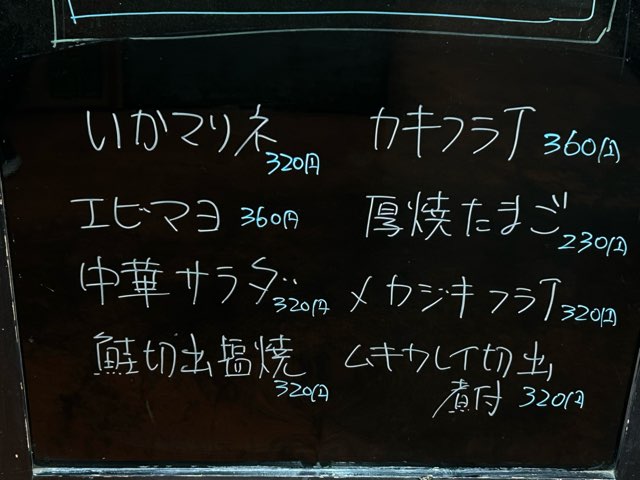 いかマリネ 320円
エビマヨ 360円
中華サラダ 320円
鮭切出塩焼 320円
カキフライ 360円
厚焼たまご 230円
メカジキフライ 320円
ムキカレイ切出
煮付 320円